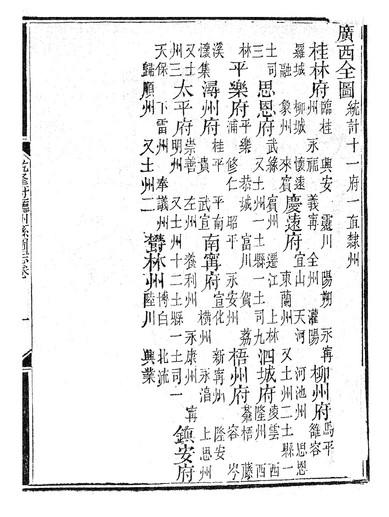 廣西全圖 統計十一府一直隸州
桂林府 臨桂 興安 靈川 陽朔 永寧州 永福 義寧 全州 灌陽 柳州府 馬平 雒容
羅城 柳城 懷遠 融 象州 來賓 慶遠府 宜山 天河 河池州 思恩 東蘭州 又土州二土縣一
土司三 思恩府 武緣 賓州 遷江 上林 又土州一土縣一土司九 泗城府 凌雲 西隆州 西
林 平樂府 平樂 恭城 富川 賀 荔浦 修仁 昭平 永安州 梧州府 蒼梧 藤 容 岑
溪 懷集 潯州府 桂平 平南 貴 武宣 南寧府 宣化 新寧州 隆安 橫州 永淳 上思州
州三 太平府 崇善 左州 養利州 永康州 寧明州 又土州十二土縣一土司一 鎮安府
天保 下雷州 奉議州 歸順州 又土州二 鬱林州 博白 北流 陸川 興業
乾隆府廳州縣圖志卷 一